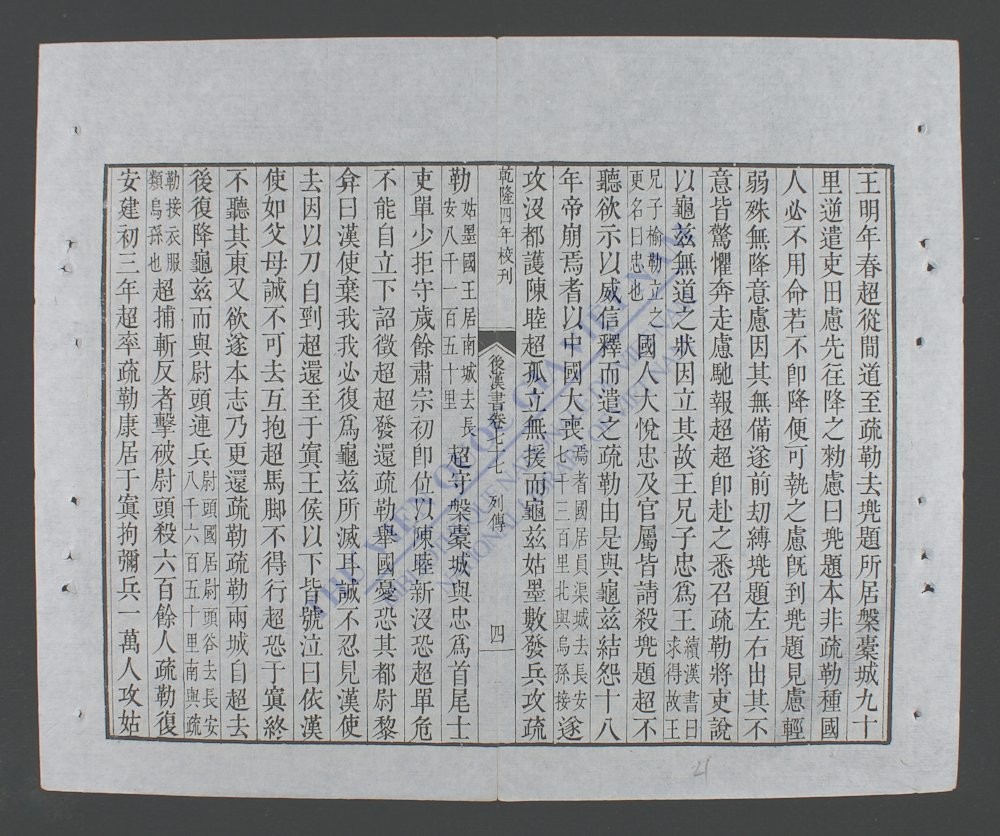 王明年春超從間道至疏勒去兠題所居槃槖城九十
里逆遣吏田慮先往降之勑慮曰兠題本非疏勒種國
人必不用命若不卽降便可執之慮旣到兠題見慮輕
弱殊無降意慮因其無備遂前刼縛兠題左右出其不
意皆驚懼奔走慮馳報超超卽赴之悉召疏勒將吏說
以龜兹無道之狀因立其故王兄子忠爲王續漢書曰求得故王
兄子榆勒立之更名曰忠也國人大悅忠及官屬皆請殺兠題超不
聽欲示以威信釋而遣之疏勒由是與龜兹結怨十八
年帝崩焉耆以中國大喪焉耆國居員渠城去長安七千三百里北與烏孫接遂
攻沒都護陳睦超孤立無援而龜兹姑墨數發兵攻疏
乾隆四年校刊
後漢書卷七十七 列傳
四
勒姑墨國王居南城去長安八千一百五十里超守槃槖城與忠爲首尾士
吏單少拒守歲餘肅宗初卽位以陳睦新沒恐超單危
不能自立下詔徵超超發還疏勒舉國憂恐其都尉黎
弇曰漢使棄我我必復爲龜兹所滅耳誠不忍見漢使
去因以刀自剄超還至于窴王侯以下皆號泣曰依漢
使如父母誠不可去互抱超馬脚不得行超恐于窴終
不聽其東又欲遂本志乃更還疏勒疏勒兩城自超去
後復降龜兹而與尉頭連兵尉頭國居尉頭谷去長安八千六百五十里南與疏
勒接衣服類烏孫也超捕斬反者擊破尉頭殺六百餘人疏勒復
安建初三年超率疏勒康居于窴拘彌兵一萬人攻姑
THƯ VIỆN QUỐC GIA VIỆT NAM
THE BIBLIOTHEQUE NATIONALE DU VIETNAM
NATIONAL LIBRARY OF VIETNAM
21